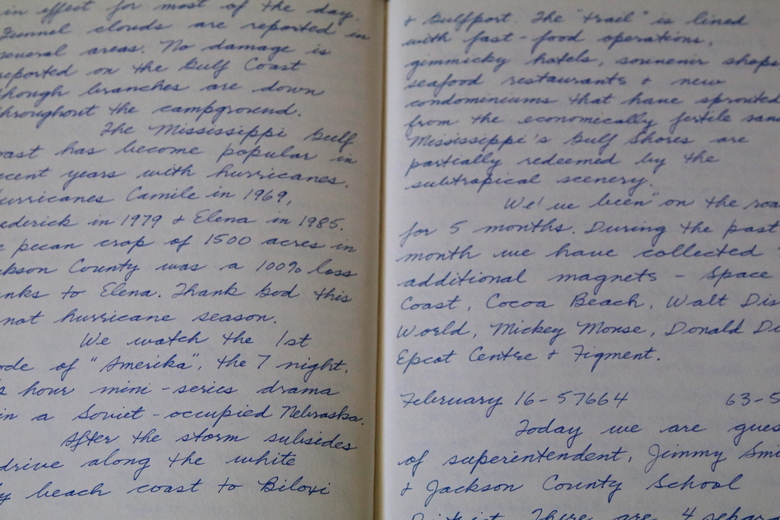 in effect for most of the day.
Funnel clouds are reported in
several areas. No damage is
reported on the Gulf Coast
though branches are down
throughout the campground.
The Mississippi Gulf
oast has become popular in
ecent years with hurricanes.
urricanes Camile in 1969,
ederick in 1979 & Elena in 1985.
e pecan crop of 1500 acres in
ckson County was a 100% loss
nks to Elena. Thank God this
not hurricane season.
We watch the 1st
ode of "Amerika", the 7 night,
hour mini-series drama
in a Soviet-occupied Nebraska.
After the storm subsides
drive along the white
y beach coast to Biloxi
& Gulfport. The "trail" is lined
with fast-food operations,
gimmicky hotels, souvenir shops
seafood restaurants & new
condominiums that have sprouted
from the economically fertile san
Mississippi's Gulf Shores are
partially redeemed by the
subtropical scenery.
We've been on the roa
for 5 months. During the past
month we have collected
additional magnets - Space
Coast, Cocoa Beach, Walt Dis
World, Mickey Mouse, Donald Du
Epcot Centre & Figment.
February 16-57664 63-5
Today we are gues
of superentendent, Jimmy Smi
& Jackson County School
District. There are 4 separa